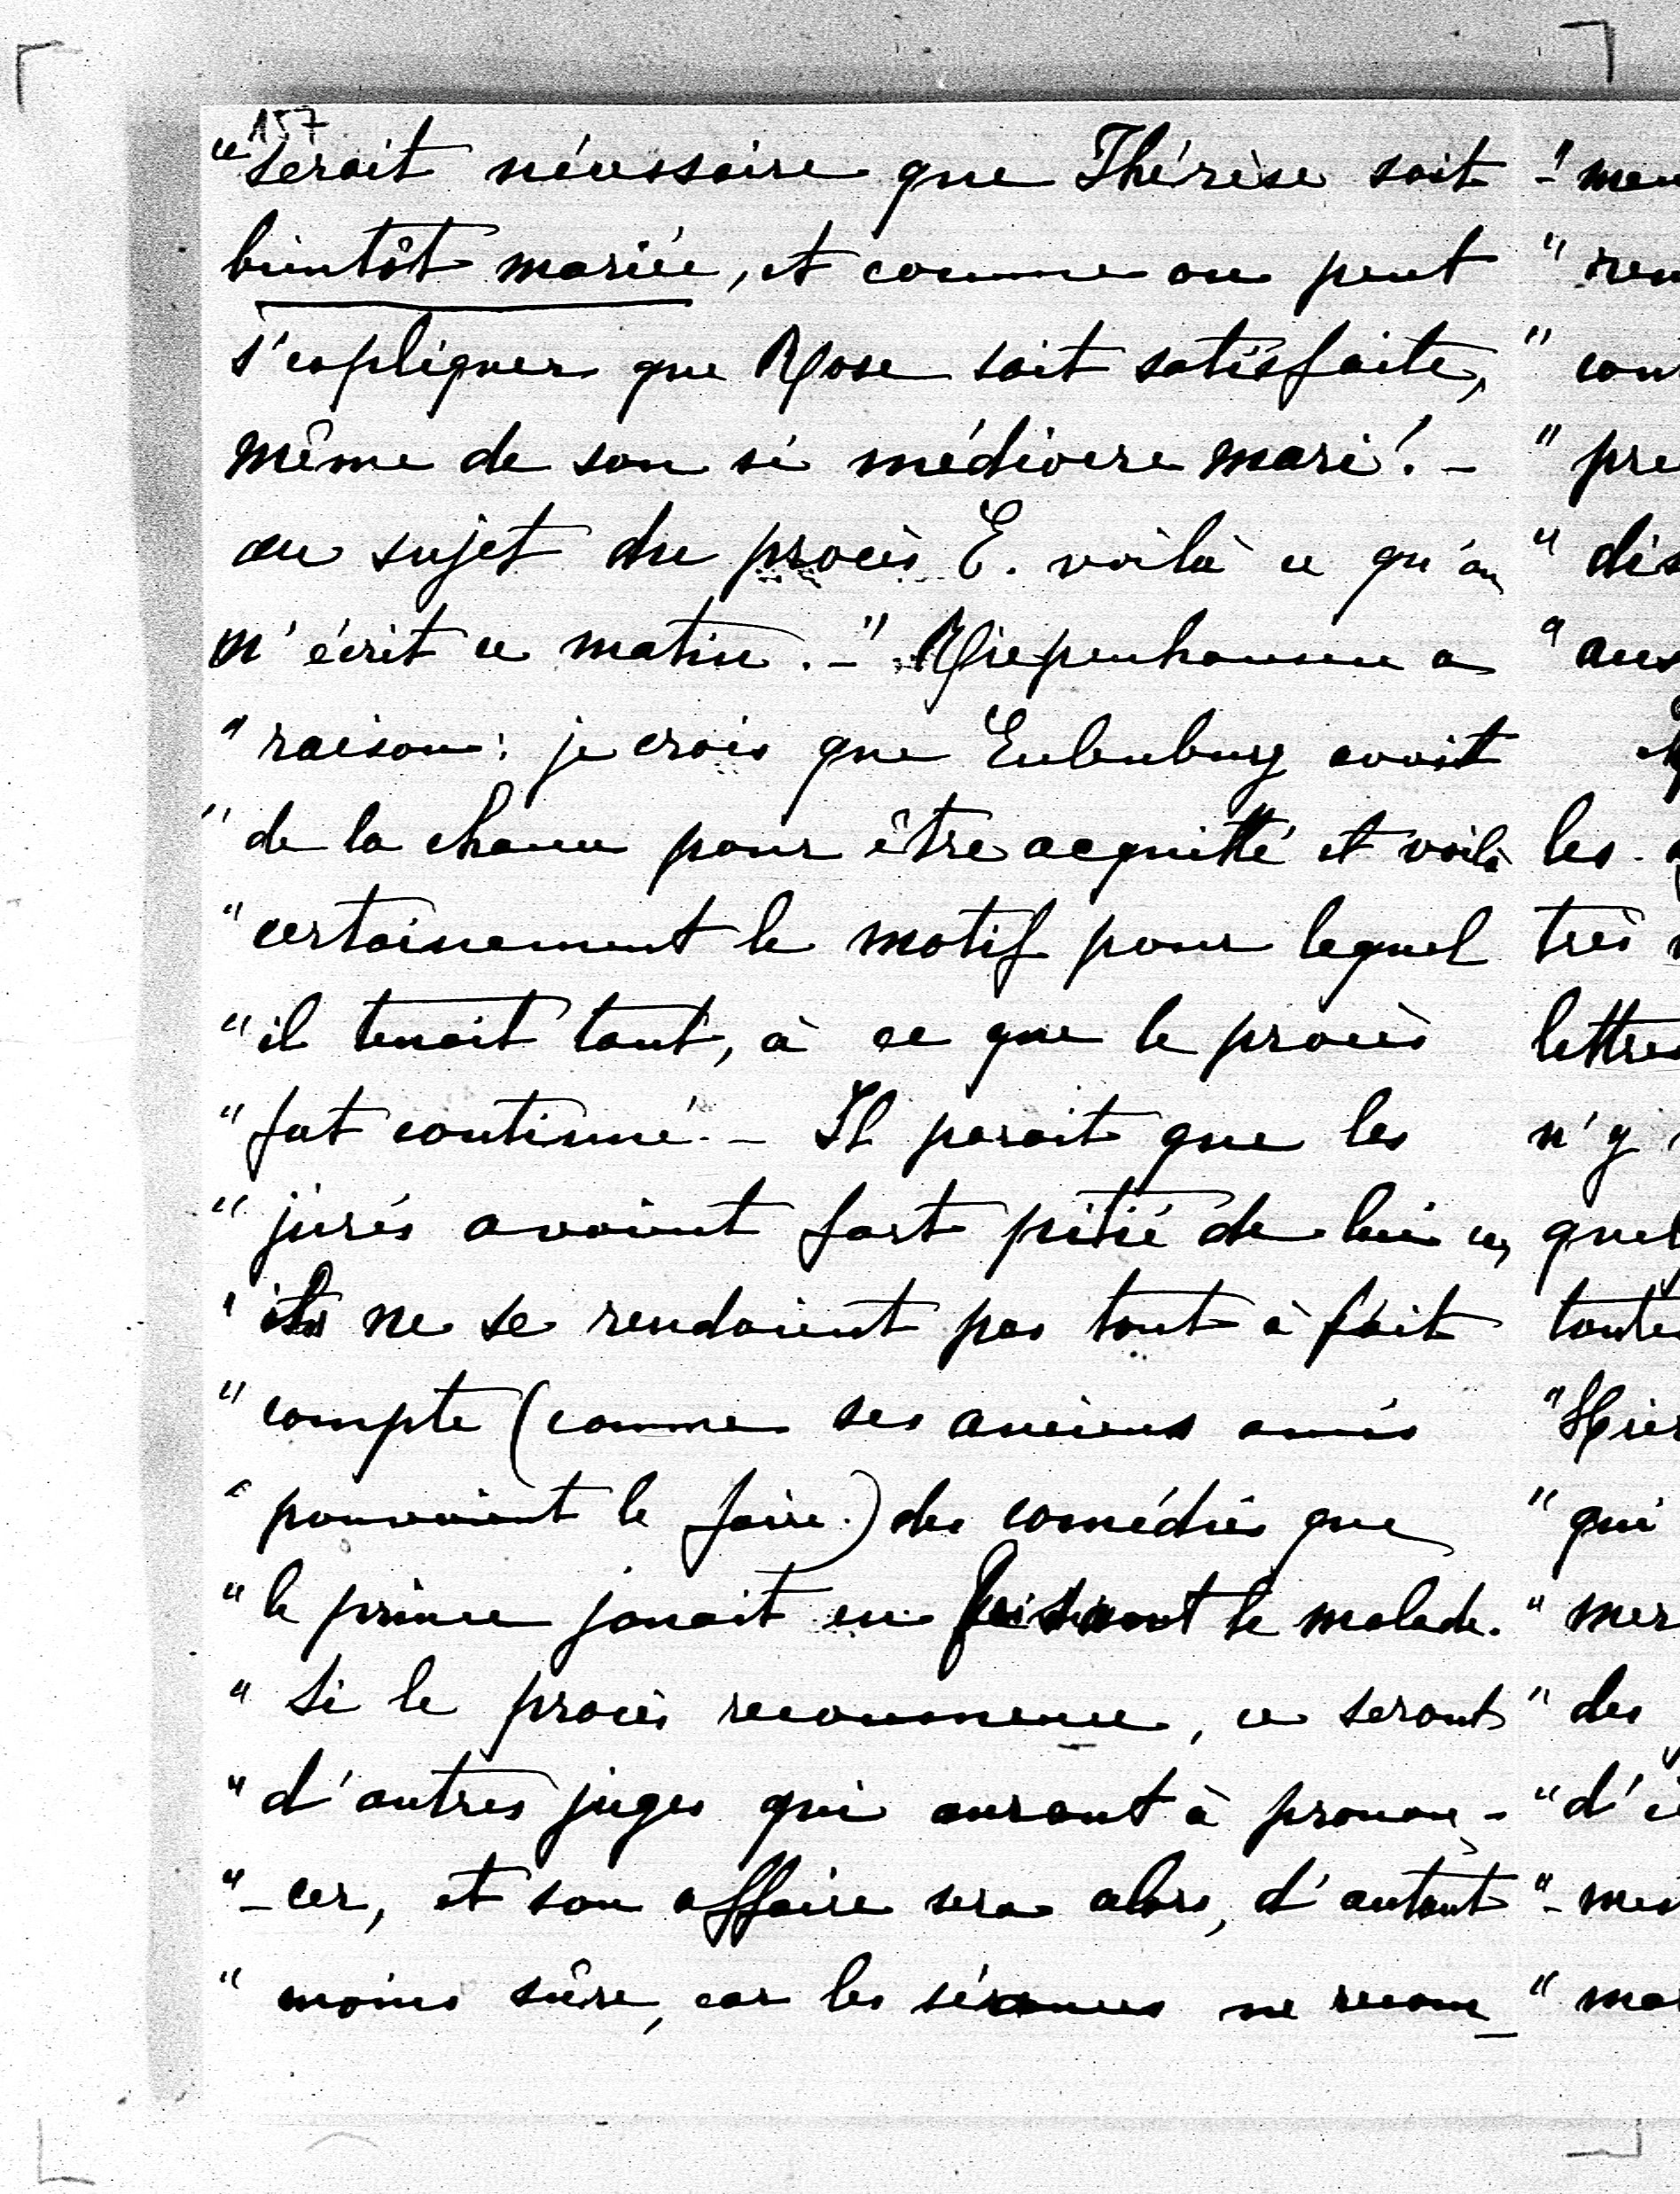 157
"serait nécessaire que Thérèse soit
bientôt mariée, et comme on peut
s'expliquer que Rose soit satisfaite,
même de son si médiocre mari! -
au sujet du procès E. voilà ce qu'on
m'écrit ce matin. - " Riepenhausen a
" raison: je crois que Eulenburg avait
" de la chance pour être acquitté et voilà
" certainement le motif pour lequel
" il tenait tant, à ce que le procès
" fut continué. - Il parait que les
" jurés avaient fort pitié de lui
" ils ne se rendaient pas tout à fait
" compte (comme ses anciens amis
" pouvaient le faire.) des comédies que
" le prince jouait en faisant le malade.
" Si le procès recommence, ce seront
" d'autres juges qui auront à pronon-
" -cer, et son affaire sera alors, d'autant
" moins sûre, car les séances ne recom_
" pre
" dis
" aus
les
très
lettres
n'y
quel
toute
" Hier
" qui
" mer
" des